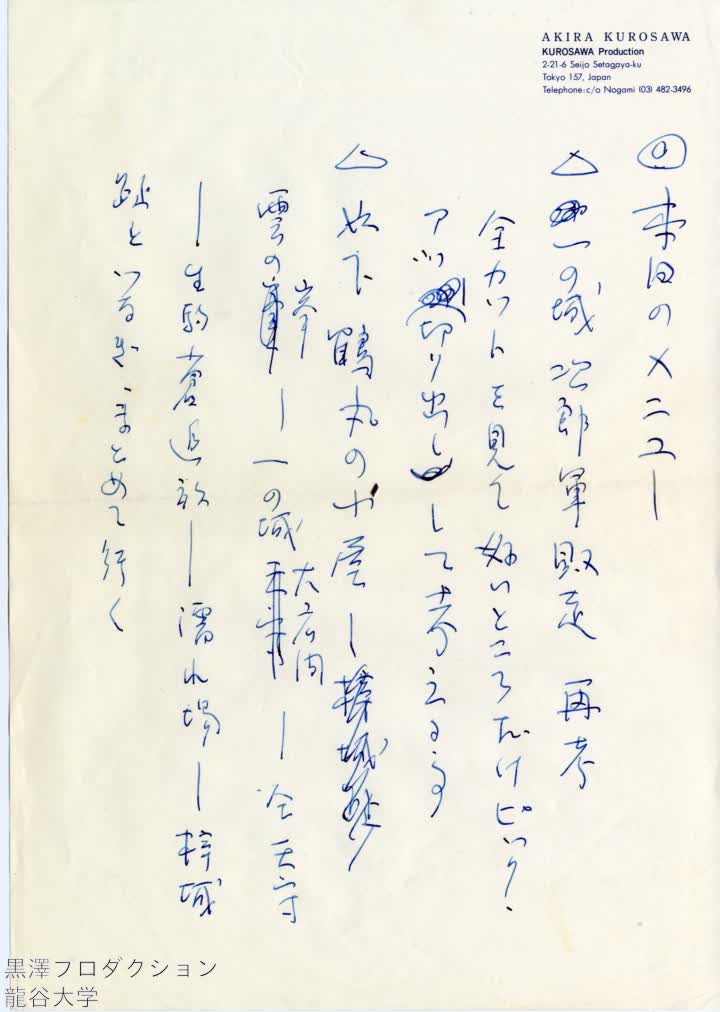 AKIRA KUROSAWA
KUROSAWA Production
2-21-6 Seijo Setagaya-ku
Tokyo 157, Japan
Telephone:c/o Nogami (03) 482-3496
◎本日のメニュー
△一の城 次郎軍敗走 再考
全カットを見て 好いところだけピック・
アップ切り出しして考える事
△以下 鶴丸の小屋ー
雲の峯ー一の城 大広間ー仝 天守
ー生駒 小倉追放ー濡れ場ー梓城
趾と まとめて行く
黒澤プロダクション
龍谷大学